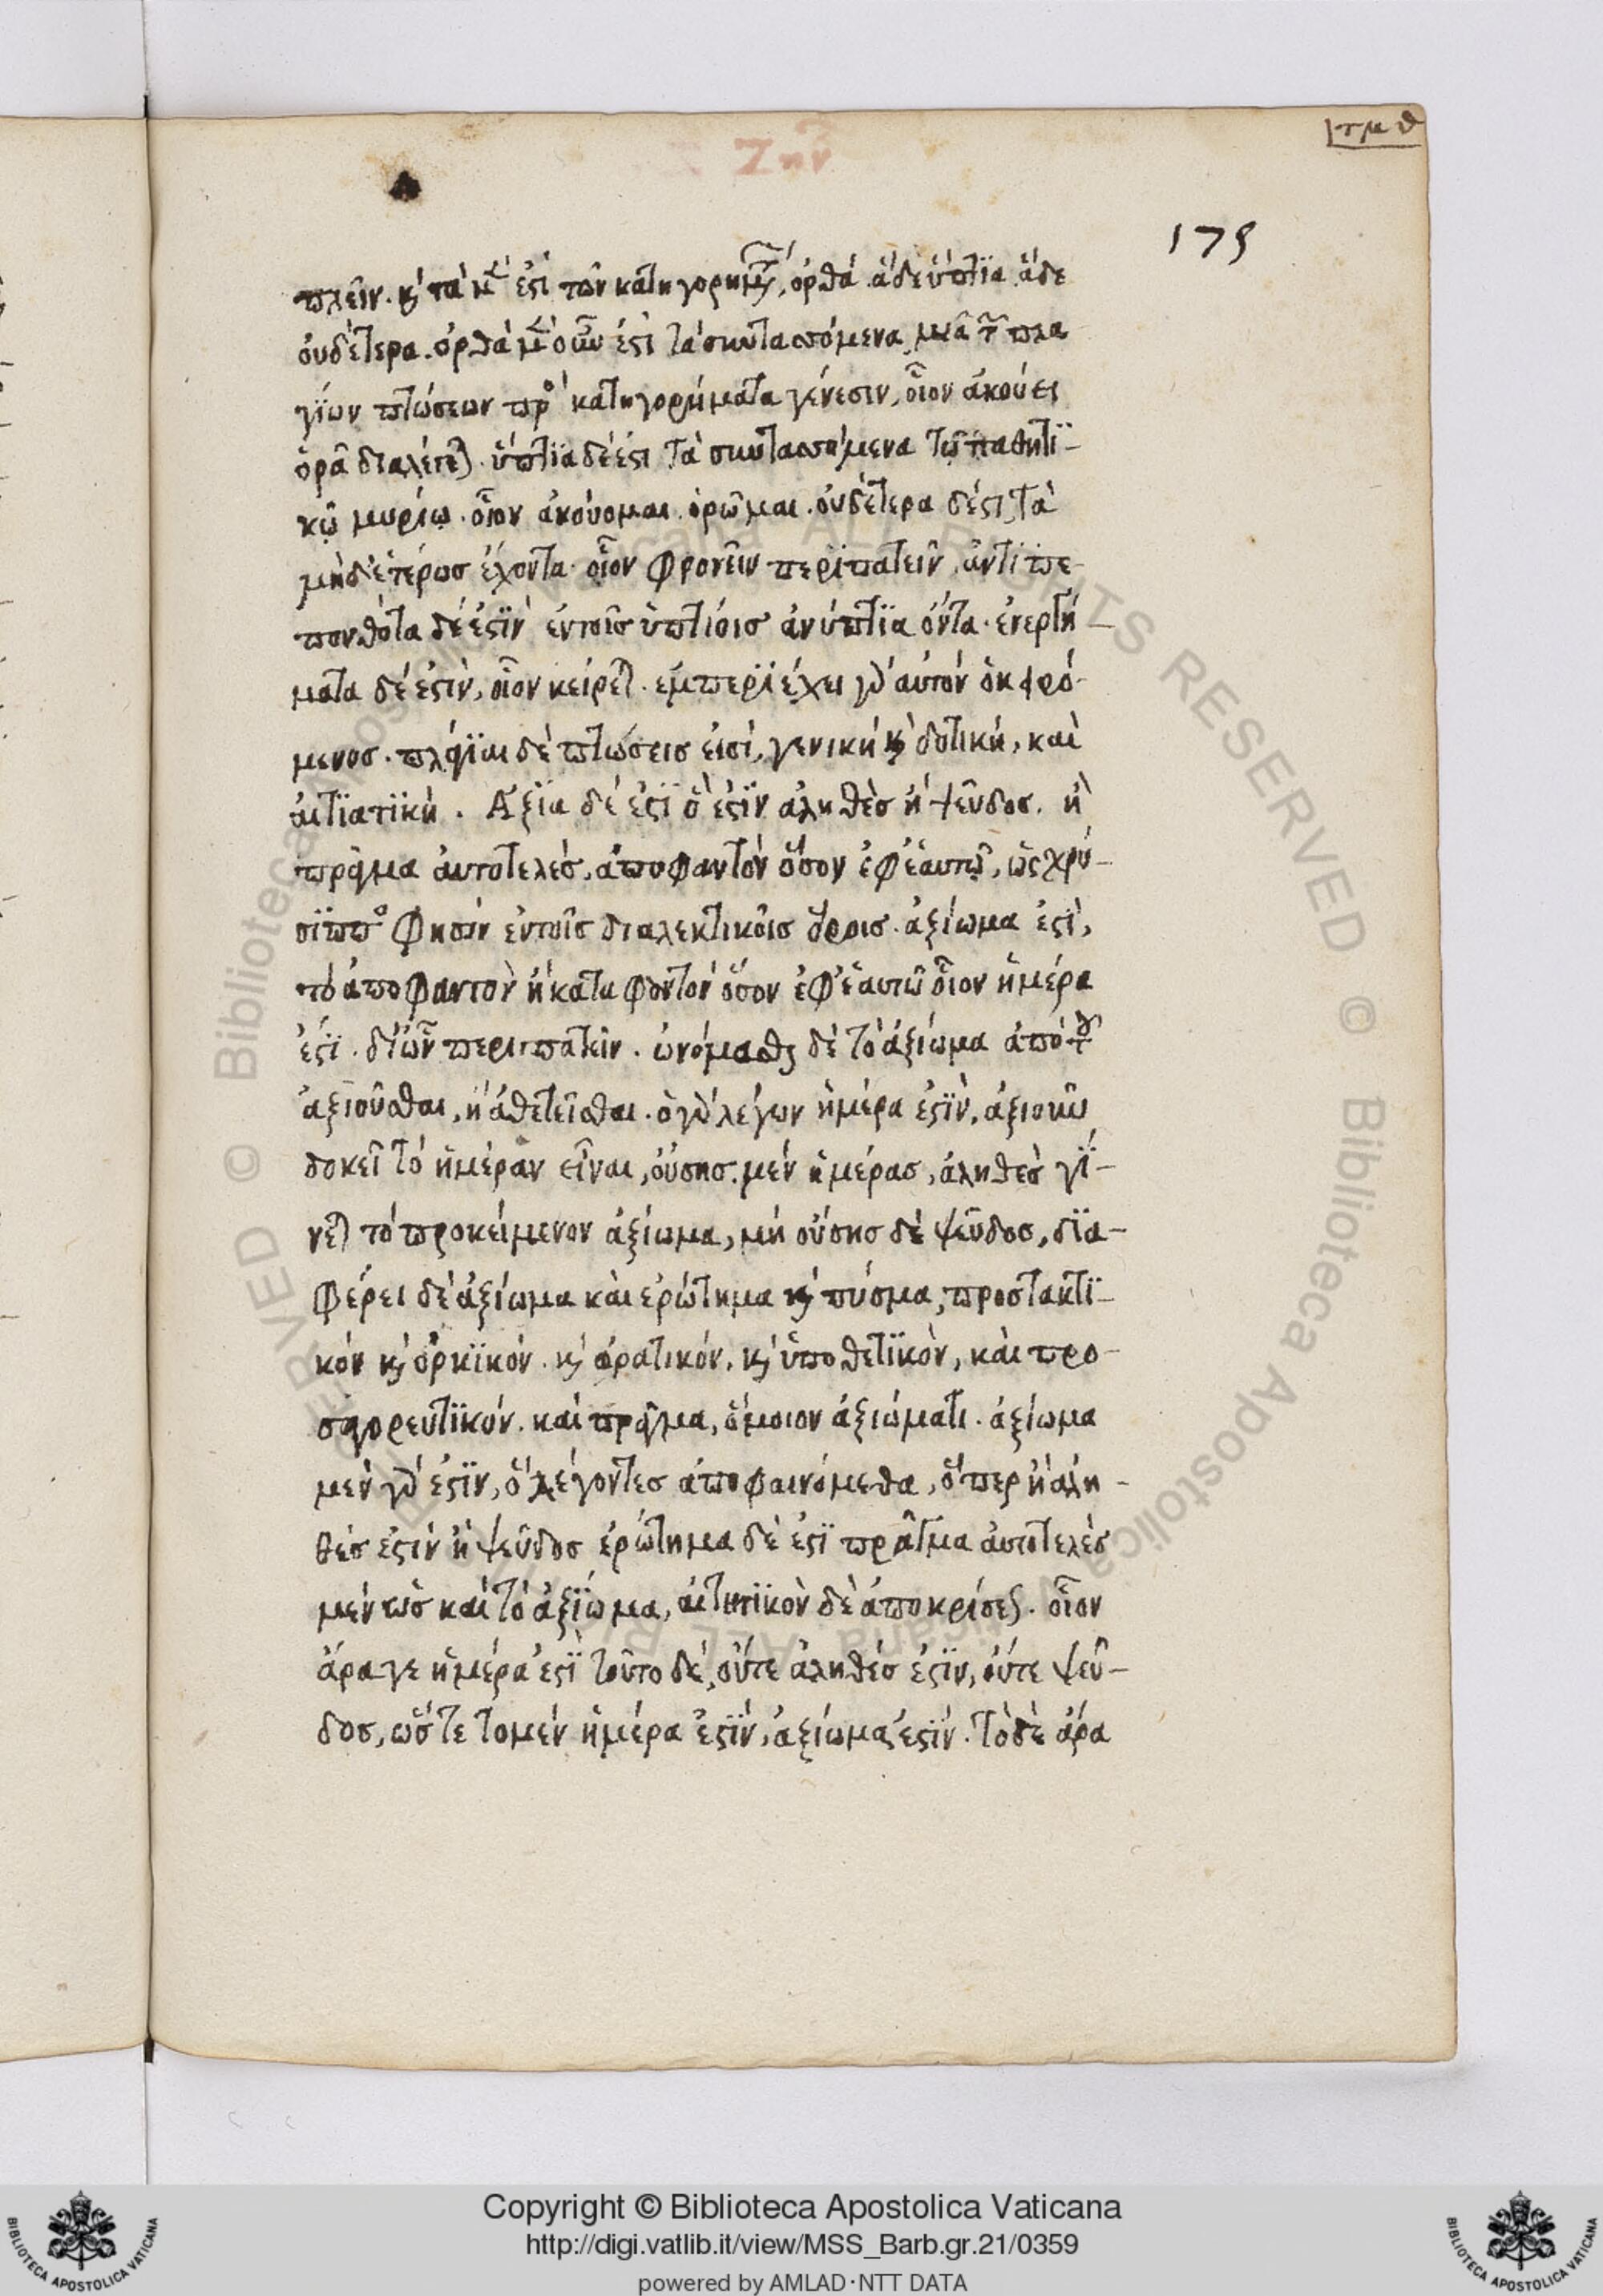 τμθ
Ζην
175
πλεῖν. κ̀ τὰ μὲν ἐςὶ τῶν κατηγορημάτων, ὀρθά. ἃ δὲ ὕπτϊα. ἃ δὲ
οὐδέτερα. ὀρθὰ μὲν οὖν ἐςι τὰ συντασσόμενα μιᾶ τῶν πλα
γΐων πτώσεων πρὸς κατηγορήματα γένεσιν, οἷον ἀκούει
ὁρᾶ διαλέγεται. ὕπτϊα δέ ἐςι τὰ συντασσόμενα τῷ παθητϊ-
κῷ μορίῳ. οἷον ἀκούομαι. ὁρῶμαι. οὐδέτερα δέ ἐςι, τὰ
μηδετέρωσ ἔχοντα. οἷον φρονεῖν περϊπατεῖν. ἀντϊπε-
πονθότα δέ ἐςϊν ἐν τοῖσ ὑπτιόισ ἀνύπτϊα ὄντα. ἐνεργή-
ματα δέ ἐςιν, οἷον κείρεται. ἐμπερϊέχει γὰρ αὐτόν ὁ κφρό-
μενοσ. πλάγϊαι δὲ πτώσεισ εἰσί, γενικὴ κ̀ δοτικὴ, καὶ
ἀιτϊατϊκὴ. Ἀξϊα δέ ἐςϊ ὅ ἐςϊν ἀληθὲσ ἢ ψεῦδοσ. ἢ
πρᾶγμα ἀυτοτελέσ, ἀποφαντὸν ὅσον ἐφ' ἑαυτῷ, ὡς χρύ-
σϊππος φησὶν ἐν τοῖσ διαλεκτικοῖσ ὅροισ. ἀξίωμα ἐςϊ,
τὸ ἀποφαντὸν ἢ καταφοντὸν ὅσον ἐφ' ἑαυτῶ οἷον ἡμέρα
ἐςϊ. δΐων περιπατεῖν. ὠνόμασθαι δὲ τὸ ἀξίωμα ἀπὸ τοῦ
ἀξιοῦσθαι, ἢ ἀθετεῖσθαι. ὁ γὰρ λέγων ἡμέρα ἐςϊν, ἀξιοῦν
δοκεῖ τὸ ἡμέραν εἶναι, οὔσησ. μὲν ἡμέρασ, ἀληθεσ γΐ-
νεται τὸ προκείμενον ἀξίωμα, μὴ οὔσησ δὲ ψεῦδοσ, δϊα-
φέρει δὲ ἀξίωμα καὶ ἐρώτημα κ̀ πύσμα, προστακτϊ-
κόν κ̀ ὁρκϊκόν. κ̀ ἀρατικόν, κ̀ ὑποθετϊκὸν, καὶ προ-
σαγορευτϊκόν. καὶ πρᾶγμα, ὅμοιον ἀξιώματι. ἀξίωμα
μὲν γάρ ἐςϊν, ὃ λέγοντεσ ἀποφαινόμεθα, ὅπερ ἢ ἀλη-
θέσ ἐςιν ἢ ψεῦδοσ ἐρώτημα δέ ἐςϊ πρᾶγμα ἀυτοτελὲσ
μὲν ὡσ καὶ τὸ ἀξϊωμα, ἀιτητϊκὸν δὲ ἀποκρίσεως. οἷον
ἆρα γε ἡμέρα ἐςϊ τοῦτο δὲ, οὔτε ἀληθέσ ἐςϊν, οὔτε ψεῦ-
δοσ, ὥστε τὸ μὲν ἡμέρα ἐςϊν, ἀξίωμα ἐςϊν. τὸ δὲ ἆρα
Copyright © Biblioteca Apostolica Vaticana
http://digi.vatlib.it/view/MSS_Barb.gr.21/0359
powered by AMLAD·NTT DATA